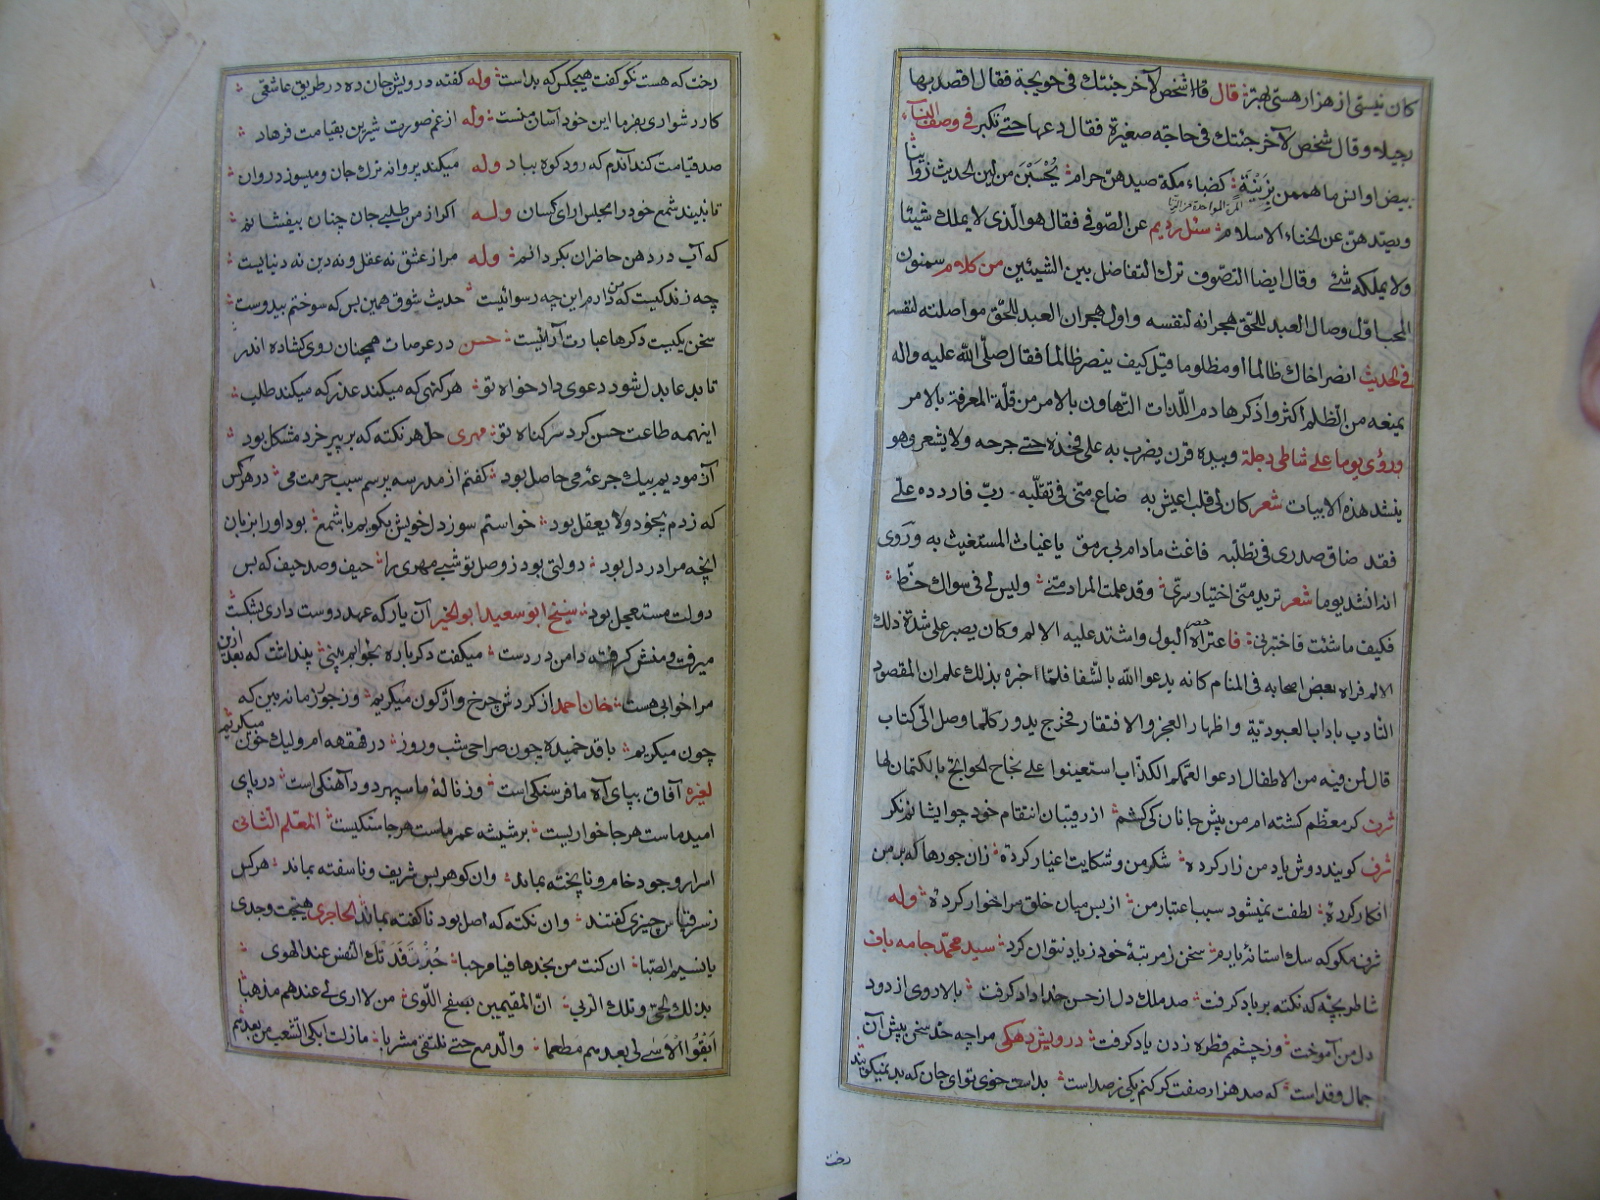 کان نیستی از هزار هستی بهتر قال قال شخص لآخر جئتك فی حویجة فقال اقصد بها
رجیلا وقال شخص لآخر جئتك فی حاجة صغیرة فقال دعها حتی تکبر فی وصف النساء
بیض اوانس ما هممن بریبة کظباء مکة صیدهن حرام یحسبن من لین الحدیث زوانیا
ویصدهن عن الخناء الاسلام سئل رویم عن الصوفی فقال هو الذی لا یملك شیئا
ولا یملکه شئ وقال ایضا التصوف ترك التفاضل بین الشیئین من کلام سمنون
المحب اول وصال العبد للحق هجرانه لنفسه واول هجران العبد للحق مواصلته لنفسه
فی الحدیث انصر اخاك ظالما او مظلوما قیل کیف ینصر ظالما فقال صلی الله علیه واله
یمنعه من الظلم اکثروا ذکر هادم اللذات التهاون بالامر من قلة المعرفة بالامر
ورؤی یوما علی شاطی دجلة وبیده قرن یضرب به علی فخذه حتی جرحه ولا یشعر وهو
ینشد هذه الابیات شعر کان لی قلب اعیش به ضاع منی فی تقلبه رب فاردده علی
فقد ضاق صدری فی تطلبه فاغث ما دام بی رمق یا غیاث المستغیث به وروی
انه انشد یوما شعر ترید منی اختیار سری وقد علمت المراد منی ولیس لی فی سواك حظ
فکیف ما شئت فاختبرنی فاعتراه حصر البول واشتد علیه الالم وکان یصبر علی شدة ذلك
الالم فراه بعض اصحابه فی المنام کانه یدعو الله بالشفا فلما اخبره بذلك علم ان المقصود
التادب باداب العبودیة واظهار العجز والافتقار فخرج یدور کلما وصل الی کتاب
قال لمن فیه من الاطفال ادعوا لعمکم الکذاب استعینوا علی نجاح الحوایج بالکتمان لها
شرف کر معظم کشته ام من پیش جانان کی کشم از رقیبان انتقام خود چو ایشانم نکر
شرف کویند دوش یاد من زار کرده شکر من و شکایت اغیار کرده زان جورها که بر من
افکار کرده لطفت نمیشود سبب اعتبار من از بس میان خلق مرا خوار کرده وله
شرف مکو که سك آستانهٔ یارم سخن ز مرتبهٔ خود زیاد نتوان کرد سید محمد جامه باف
شاطر بچه که نکته بر باد کرفت صد ملك دل از حسن خداداد کرفت بالا روی از دود
دل من آموخت وز چشم قطره زدن یاد کرفت درویش دهکی مرا چه حد سخن پیش آن
جمال و قد است که صد هزار صفت کر کنم یکی ز صد است بد است خوی تو ای جان که بد نمیکویند
رخت
رخت که هست نکو کفت هیچکس که بد است وله کفته درویش جان ده در طریق عاشقی
کار دشواری بفرما این خود آسان منست وله از غم صورت شیرین بقیامت فرهاد
صد قیامت کند آندم که رود کوه بباد وله میکند پروانه ترك جان و میسوزد روان
تا نبیند شمع خود را مجلس ارای کسان وله اکر از من طلبی جان چنان بیفشانم
که آب در دهن حاضران بکردانم وله مرا ز عشق نه عقل و نه دین نه دنیایست
چه زندکیست که من دارم این چه رسوائیست حدیث شوق همین بس که سوختم بیدوست
سخن یکیست دکرها عبارت آرائیست حسن در عرصات همچنان روی کشاده اندر
تا بدعا بدل شود دعوی دادخواه تو هر کنهی که میکند عذر که میکند طلب
اینهمه طاعت حسن کرد سر کناه تو مهری حل هر نکته که بر پیر خرد مشکل بود
آزمودیم بیك جرعهٔ می حاصل بود کفتم از مدرسه پرسم سبب حرمت می در هر کس
که زدم بیخود و لا یعقل بود خواستم سوز دل خویش بکویم با شمع بود او را بزبان
آنچه مرا در دل بود دولتی بود ز وصل تو شبی مهری را حیف و صد حیف که بس
دولت مستعجل بود شیخ ابو سعید ابو الخیر آن یار که عهد دوست داری بشکست
میرفت و منش کرفته دامن در دست میکفت دکر باره بخوابم بینی پنداشت که بعد ازین
مرا خوابی هست خان احمد از کردش چرخ واژکون میکریم وز جور زمانه بین که
چون میکریم با قد خمیده چون صراحی شب و روز در قهقهه ام ولیك خون میکریم
لغیره آفاق بپای آه ما فرسنکی است وز نالهٔ ما سپهر دود آهنکی است در پای
امید ماست هر جا خاریست بر شیشه عمر ماست هر جا سنکیست المعلم الثانی
اسرار وجود خام و ناپخته بماند وان کوهر بس شریف و ناسفته بماند هر کس
ز سر قیاس چیزی کفتند وان نکته که اصل بود ناکفته بماند الحاجری هیجت وجدی
یا نسیم الصبا ان کنت من نجد فیا مرحبا جد فدتك النفس عند الهوی
بذلك الحی وتلك الربی ان المقیمین بسفح اللوی من لا اری لی عندهم مذهبا
ابقوا الاسی لی بعدهم مطعما والدمع حتی نلتقی مشربا ما زلت ابکی الشعب من بعدهم